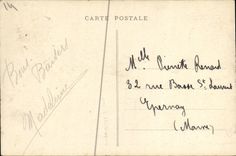 14
CARTE POSTALE
Bons
Baisers
Madeleine
Mlle Pierrette Renard
32 rue Basse St Laurent
Epernay
(Marne)